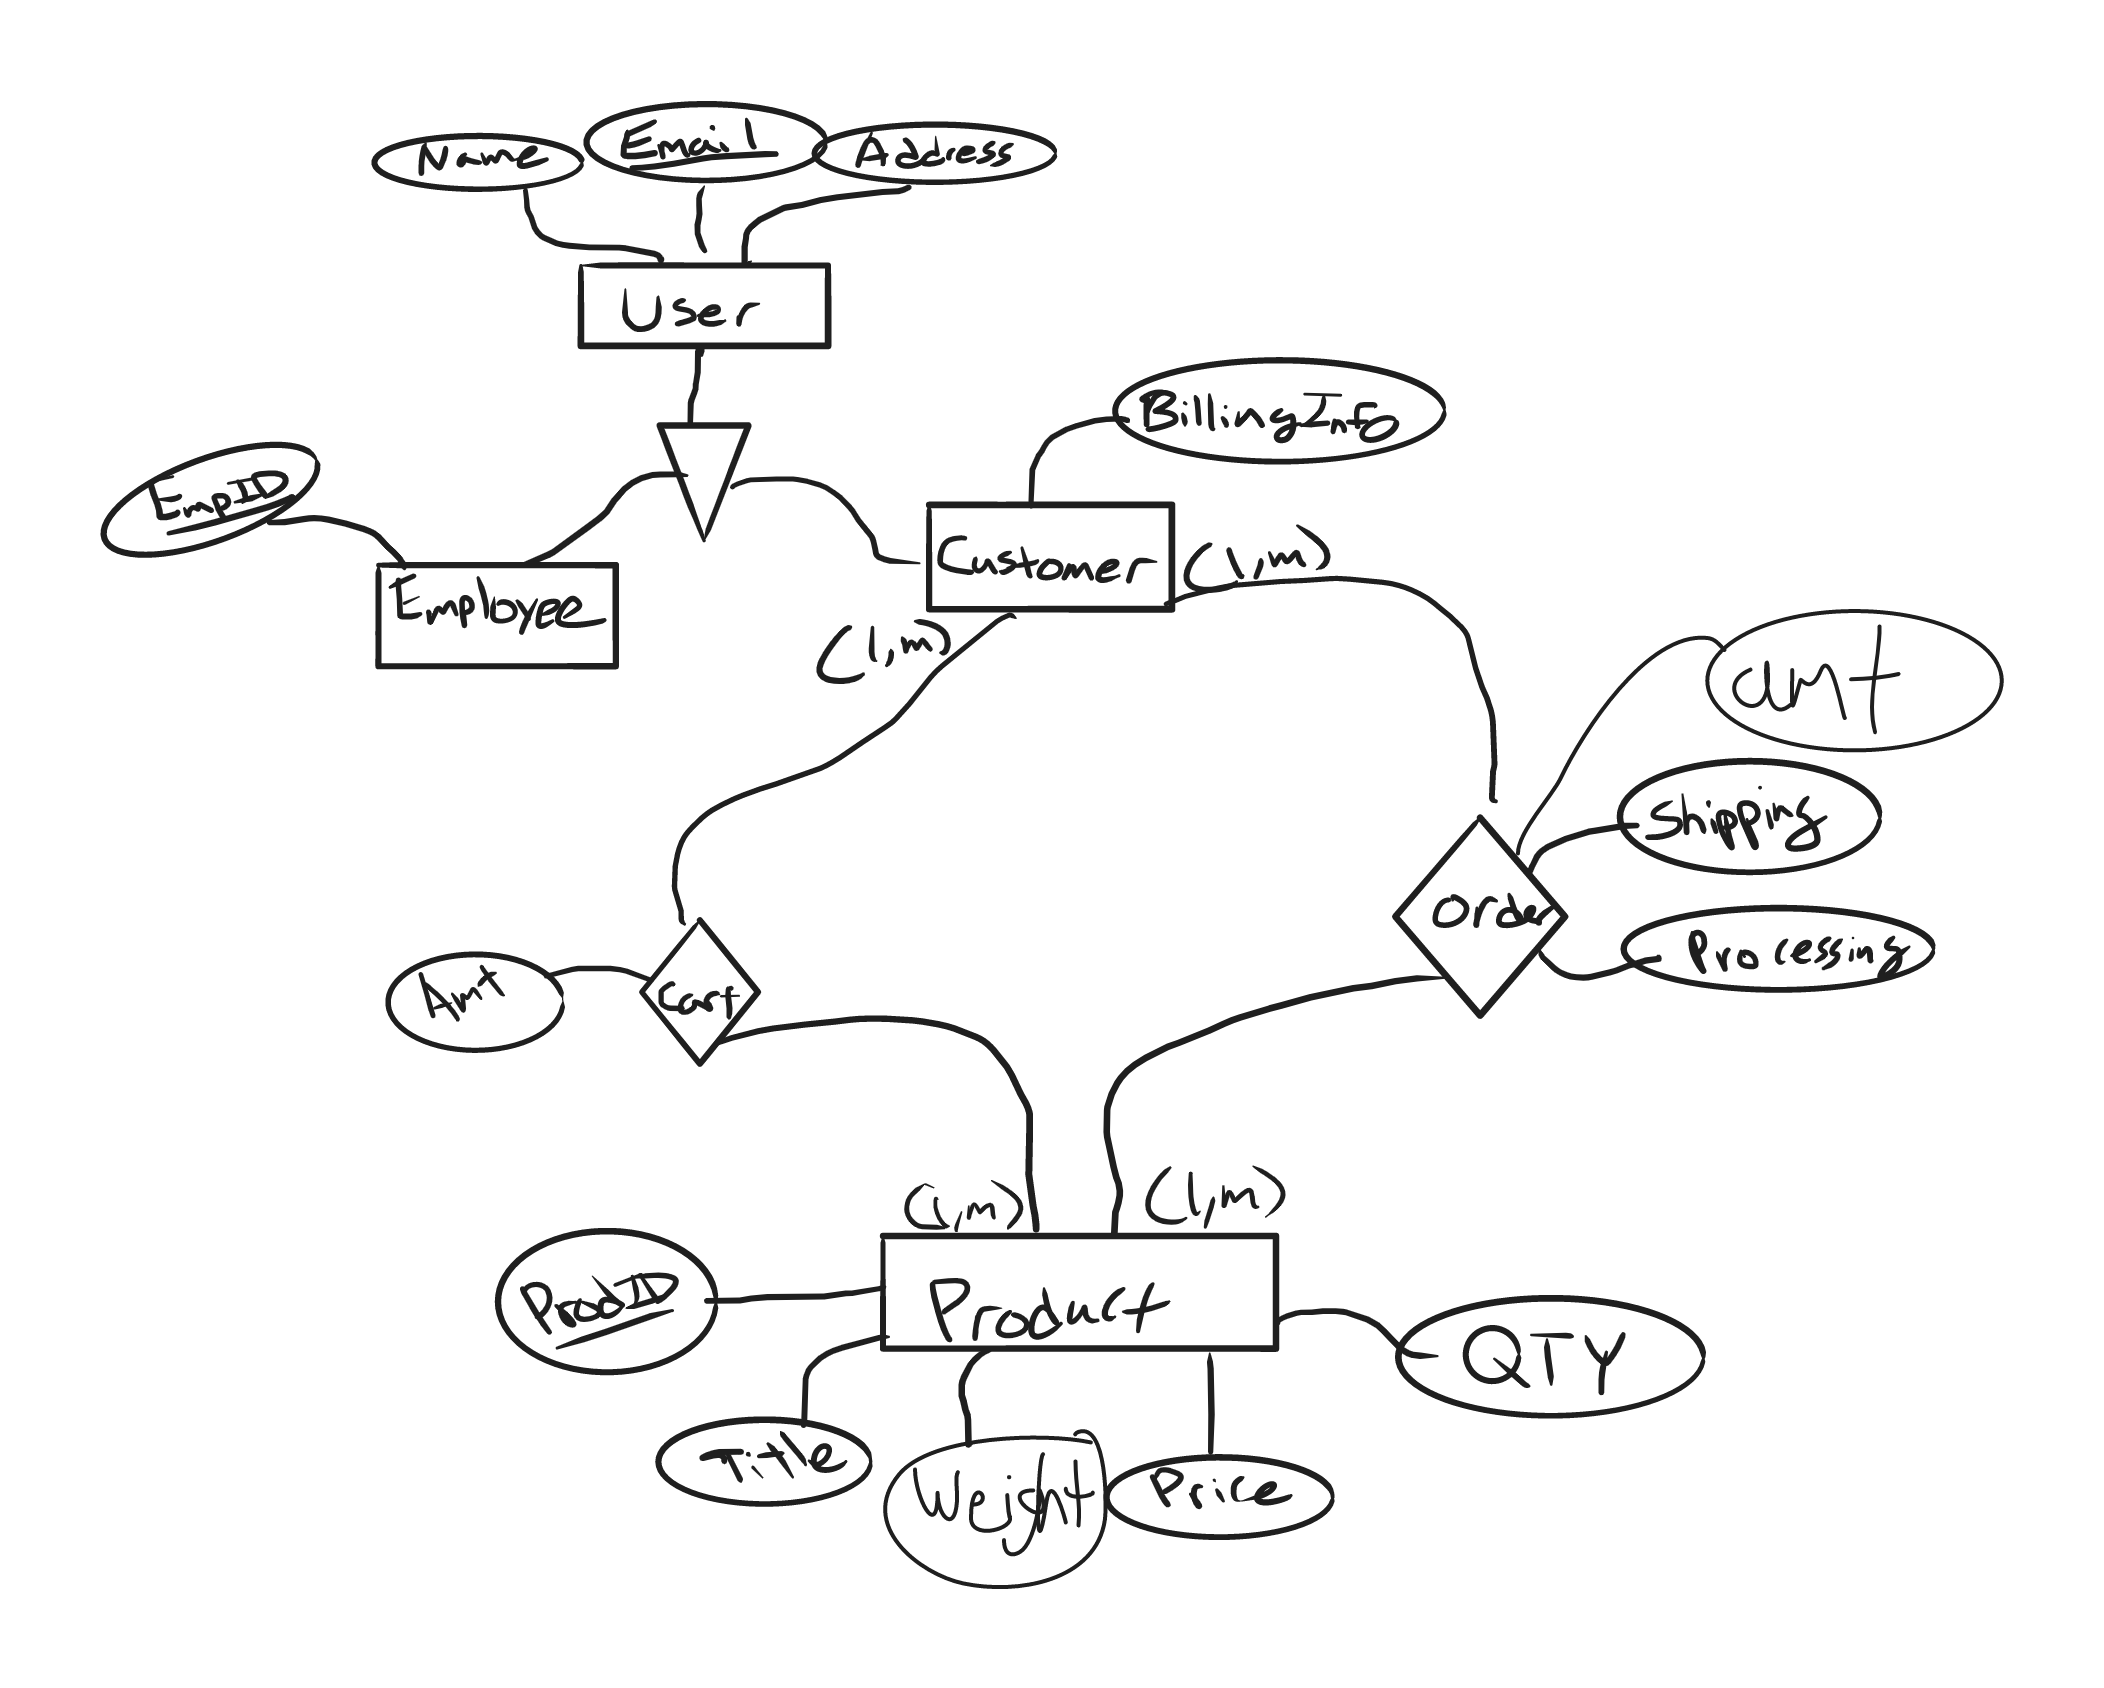 Name
Email
Address
User
BillingInfo
EmpID
Customer
(1,m)
Employee
(1,m)
amt
Shipping
Order
Processing
Amt
Cart
(1,m)
(1,m)
ProdID
Product
QTY
Title
Weight
Price